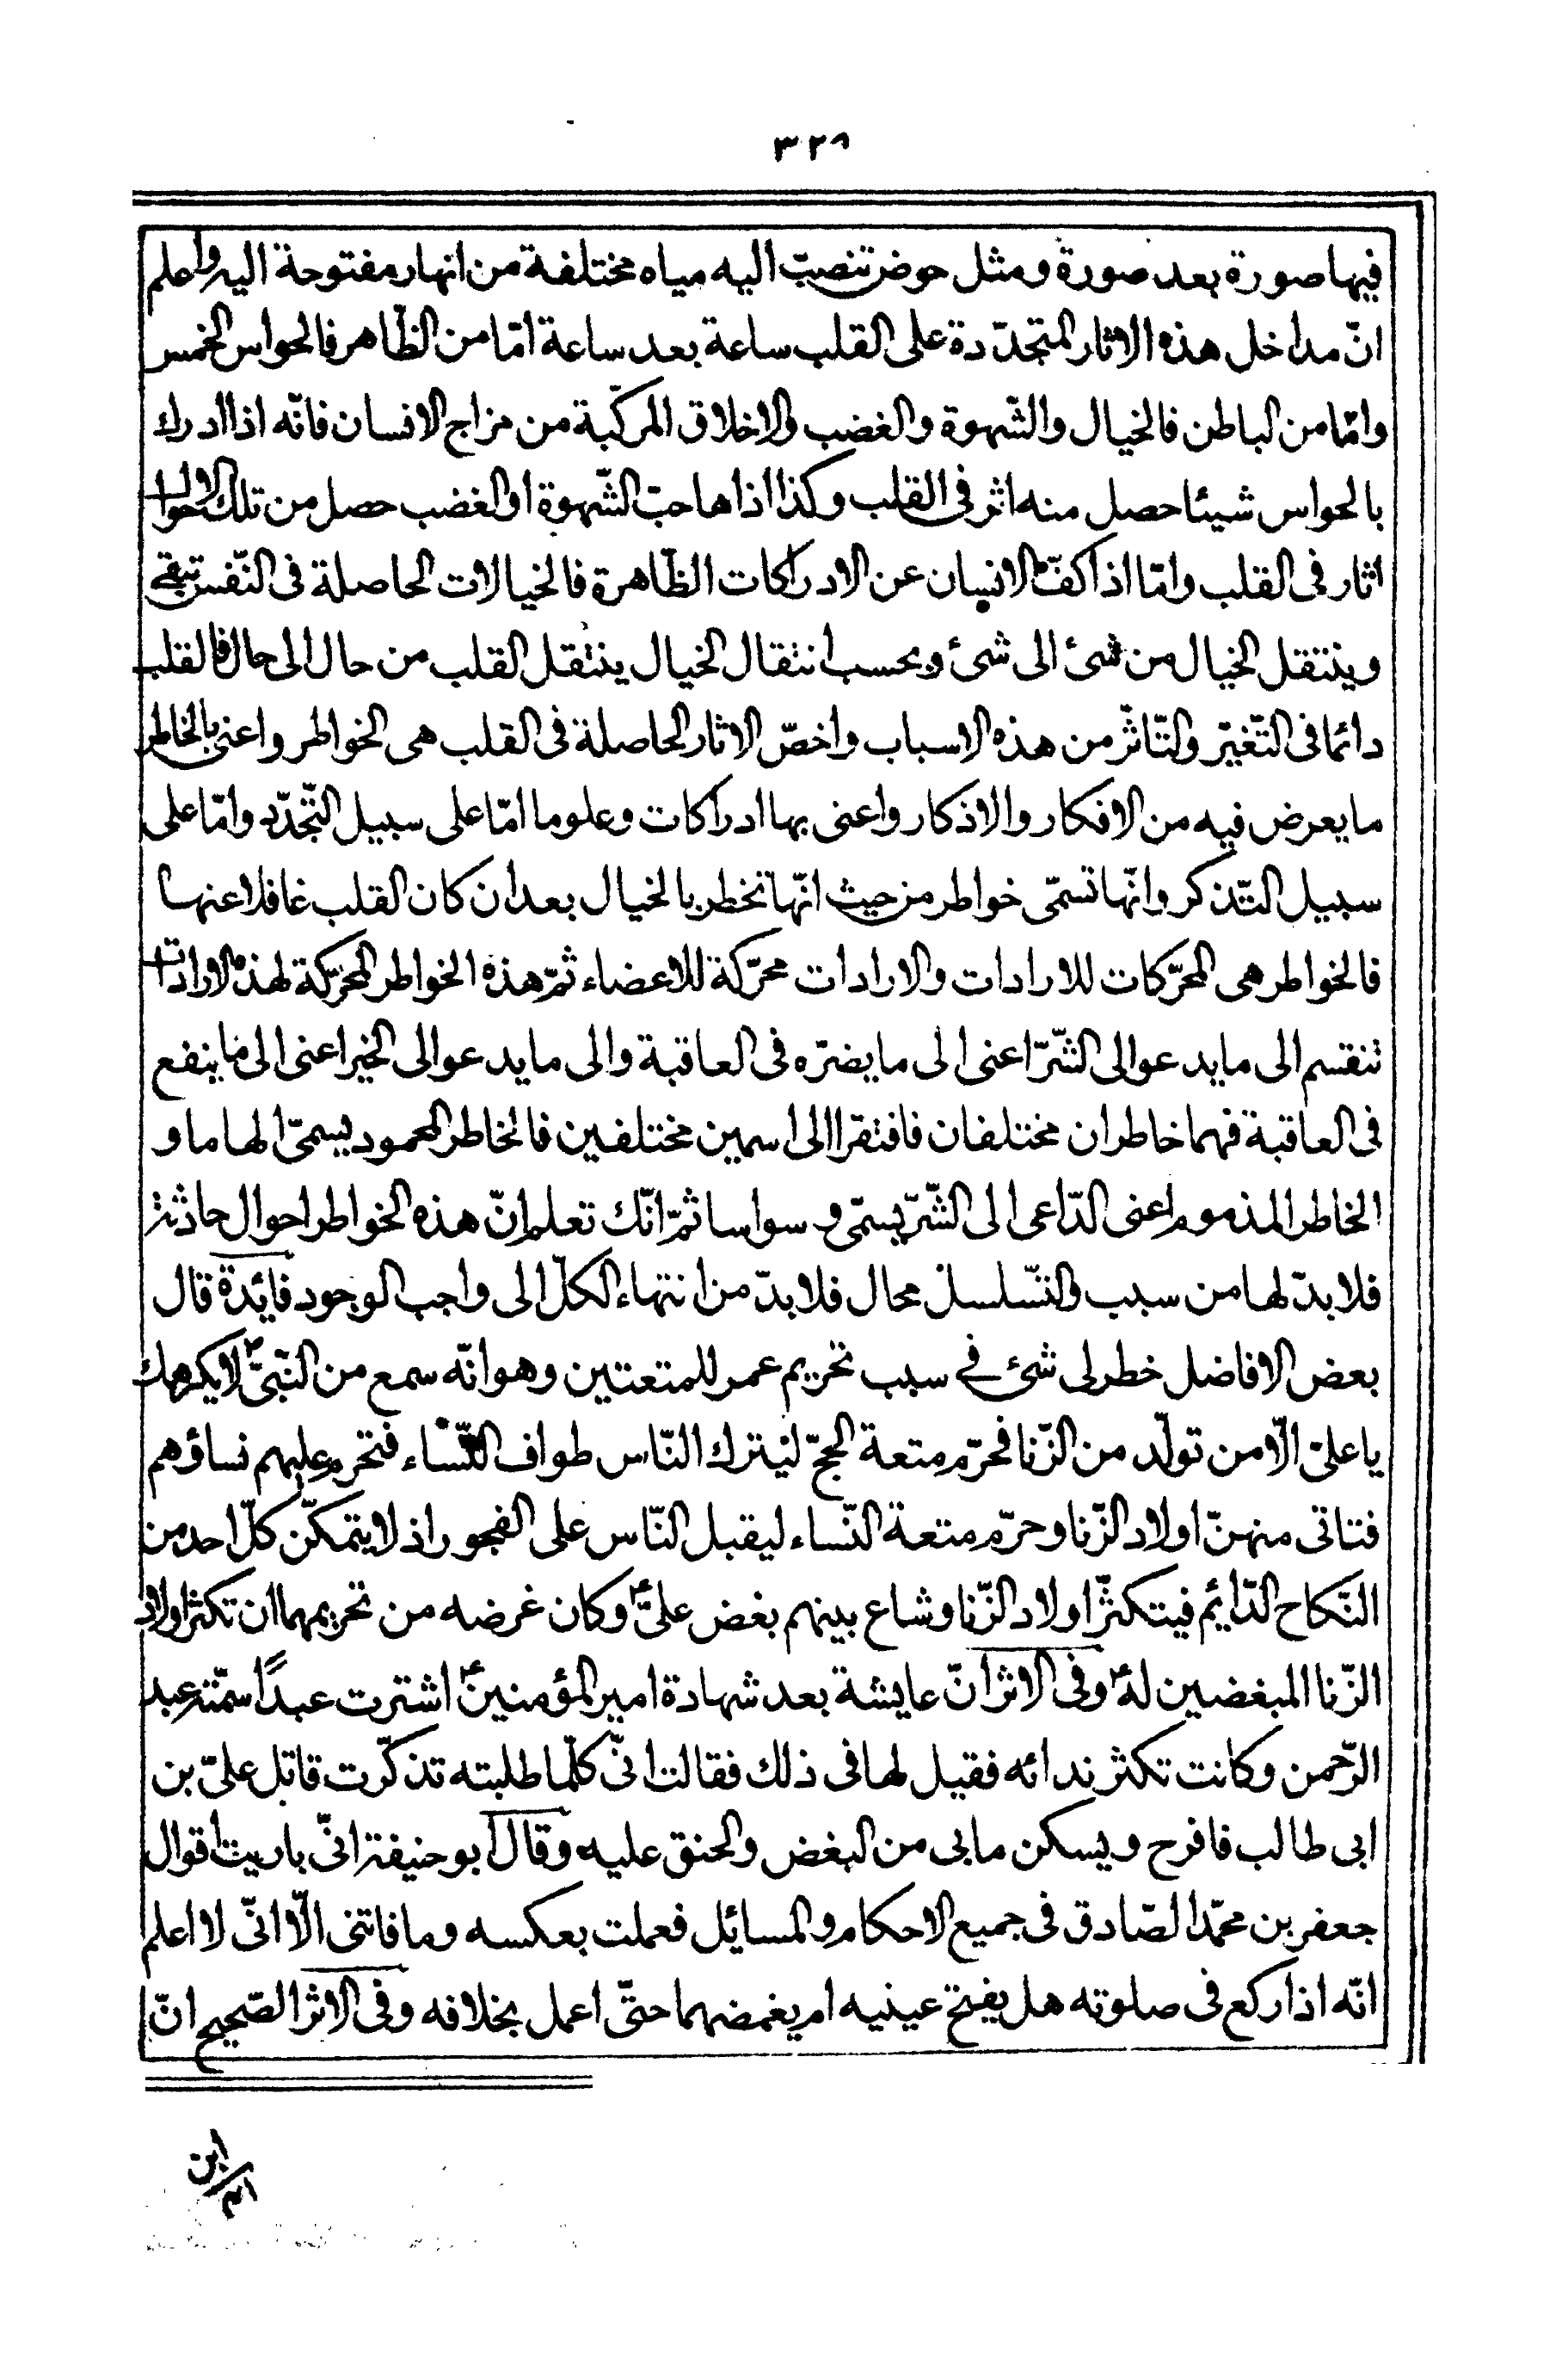 ٣٢٩
فيها صورة بعد صورة ومثل حوض تنصبّ اليه مياه مختلفة من انهار مفتوحة اليه واعلم
انّ مداخل هذه الاثار المتجدّدة على القلب ساعة بعد ساعة امّا من الظّاهر فالحواس الخمس
وامّا من الباطن فالخيال والشّهوة والغضب والاخلاق المركّبة من مزاج الانسان فانّه اذا ادرك
بالحواس شيئا حصل منه اثر فى القلب وكذا اذا هاجت الشّهوة او الغضب حصل من تلك الاحوال
اثار فى القلب وامّا اذا كفّ الانسان عن الادراكات الظّاهرة فالخيالات الحاصلة فى النّفس تبقى
وينتقل الخيال من شئ الى شئ وبحسب انتقال الخيال ينتقل القلب من حال الى حال فالقلب
دائما فى التّغيّر والتّاثّر من هذه الاسباب واخصّ الاثار الحاصلة فى القلب هى الخواطر واعنى بالخاطر
ما يعرض فيه من الافكار والاذكار واعنى بها ادراكات وعلوما امّا على سبيل التّجدّد وامّا على
سبيل التّذكر وانّها تسمّى خواطر من حيث انّها تخطر بالخيال بعد ان كان القلب غافلا عنها
فالخواطر هى المحرّكات للارادات والارادات محرّكة للاعضاء ثمّ هذه الخواطر المحرّكة لهذه الارادات
تنقسم الى ما يدعو الى الشّرّ اعنى الى ما يضرّه فى العاقبة والى ما يدعو الى الخير اعنى الى ما ينفع
فى العاقبة فهما خاطران مختلفان فافتقرا الى اسمين مختلفين فالخاطر المحمود يسمّى الهاما و
الخاطر المذموم اعنى الدّاعى الى الشّرّ يسمّى وسواسا ثمّ انّك تعلم انّ هذه الخواطر احوال حادثة
فلا بدّ لها من سبب والتّسلسل محال فلا بدّ من انتهاء الكلّ الى واجب الوجود فايدة قال
بعض الافاضل خطر لى شئ فى سبب تحريم عمر للمتعتين وهو انّه سمع من النّبىّ ص لا يكرهك
يا علىّ الّا من تولّد من الزّنا فحرّم متعة الحجّ ليترك النّاس طواف النّساء فتحرم عليهم نساؤهم
فتاتى منهنّ اولاد الزّنا وحرّم متعة النّساء ليقبل النّاس على الفجور اذ لا يتمكّن كلّ احد من
النّكاح الدّايم فيتكثّر اولاد الزّنا وشاع بينهم بغض علىّ ع وكان غرضه من تحريمهما ان تكثر اولاد
الزّنا المبغضين له ع وفى الاثر انّ عايشة بعد شهادة امير المؤمنين ع اشترت عبدًا سمّته عبد
الرّحمن وكانت تكثر ندائه فقيل لها فى ذلك فقالت انّى كلّما طلبته تذكّرت قاتل علىّ بن
ابى طالب فافرح ويسكن مابى من البغض والحنق عليه وقال ابو حنيفة انّى باريت اقوال
جعفر بن محمّد الصّادق فى جميع الاحكام والمسايل فعملت بعكسه وما فاتنى الّا انّى لا اعلم
انّه اذا ركع فى صلوته هل يفتح عينيه ام يغمضهما حتّى اعمل بخلافه وفى الاثر الصّحيح انّ
ابن